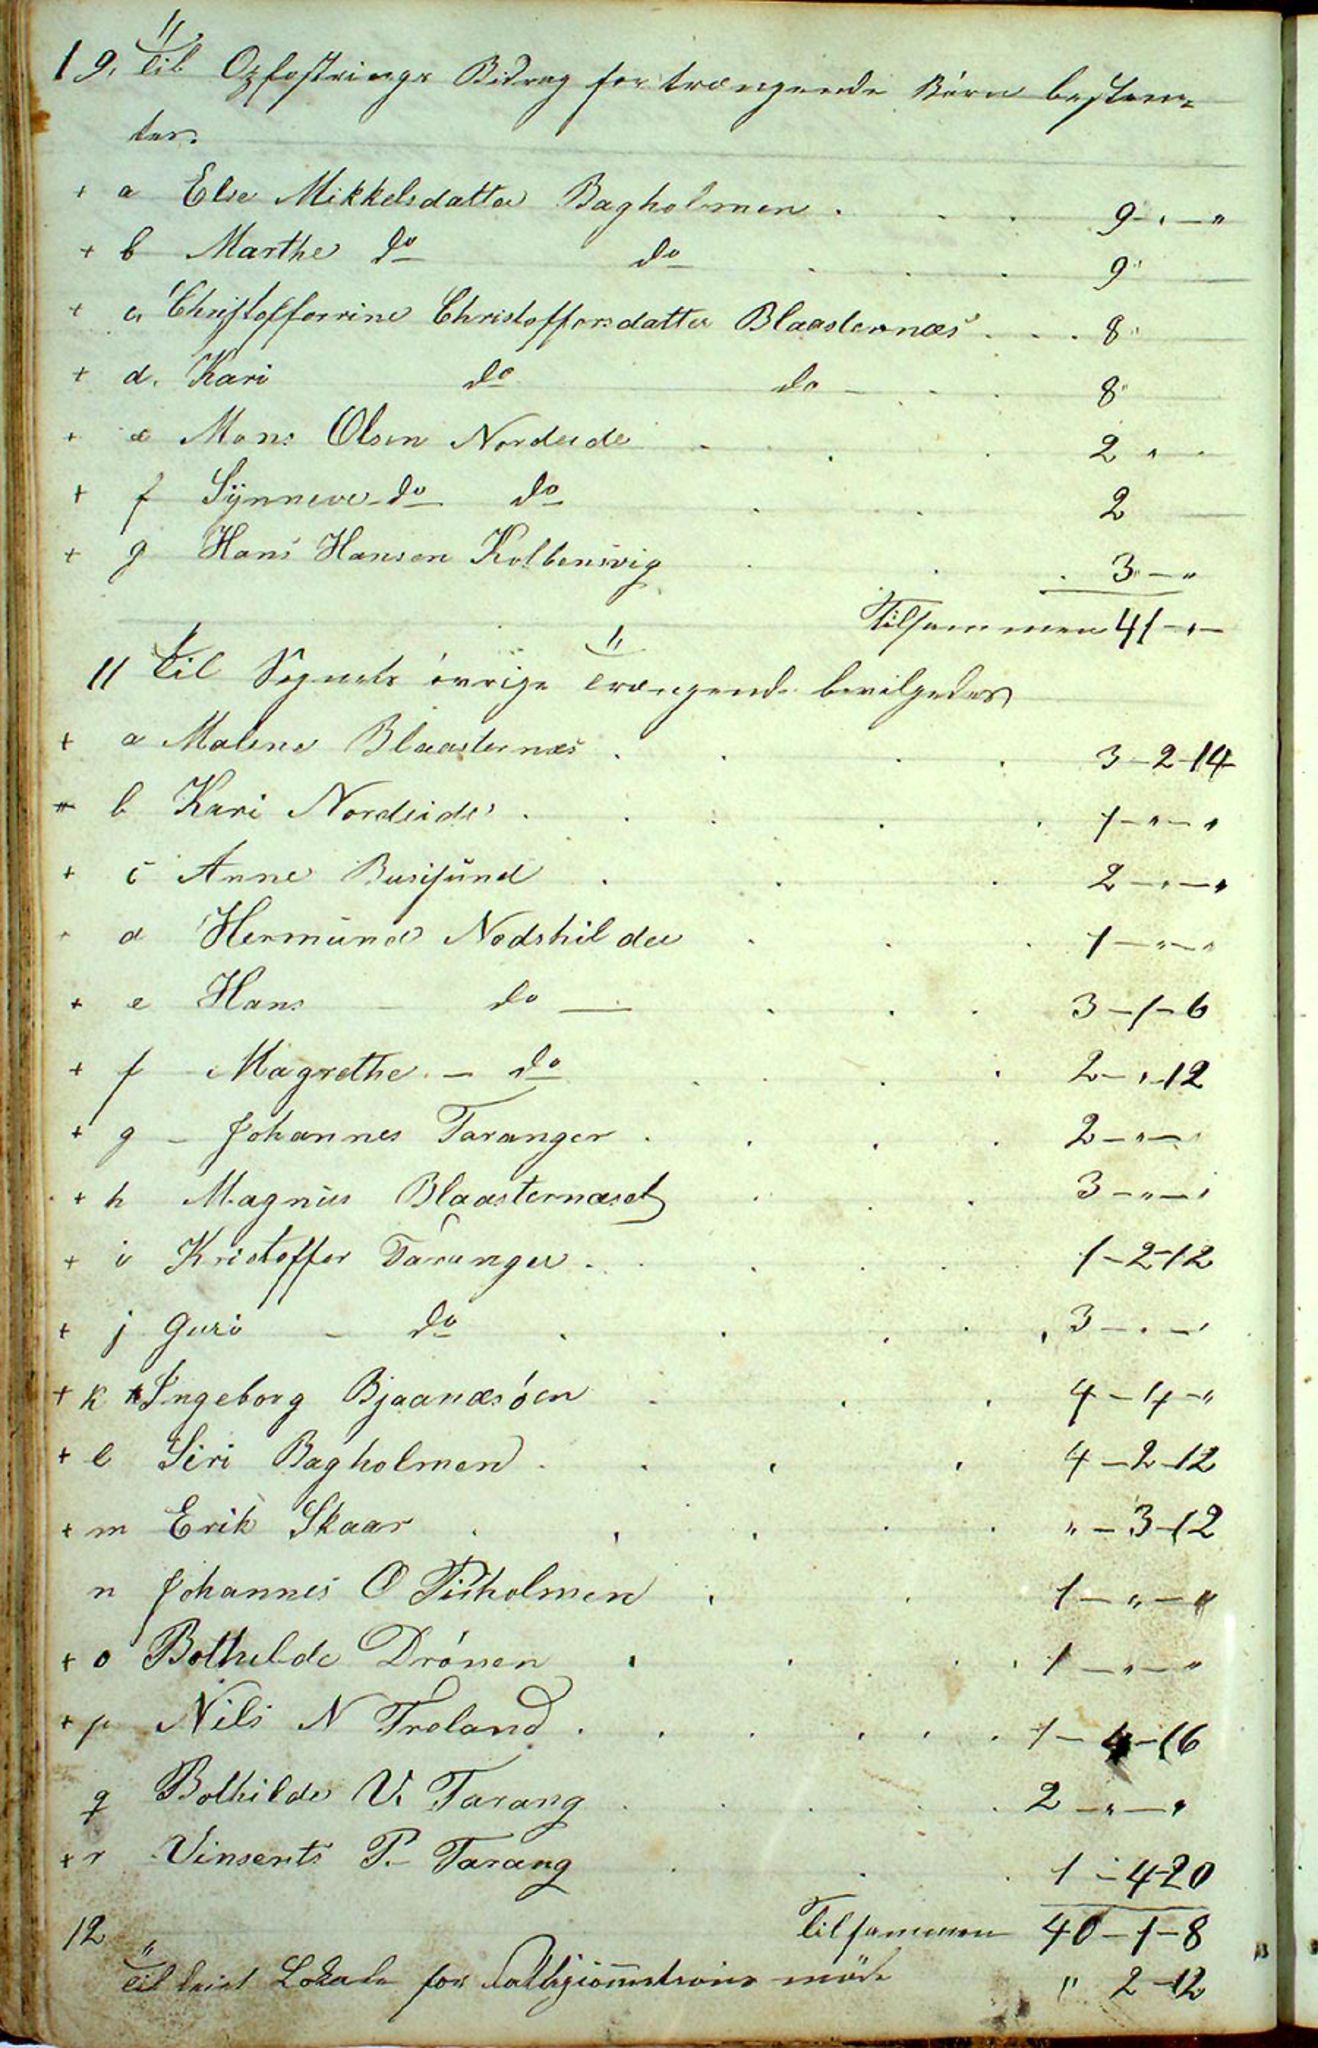 19. Til Opfostrings Bidrag for trængende Børn bestem=
tes.
+ a Else Mikkelsdatter Bagholmen . . . 9 - " - "
+ b Marthe do do . . . 9 "
+ c. Christofferine Christoffersdatter Blaasternæs . . . 8 "
+ d. Kari do do - . . 8 "
+ e Mons Olsen Nordeide . . . 2 " -
+ f Synneve do do . . 2
+ g Hans Hansen Kolbensvig . . . 3 - "
Tilsammen 41 - " -
11 Til Sognets øvrige trængende bevilgedes
+ a Malene Blaasternæs . . . . 3 - 2 - 14
+ b Kari Nordeide . . . . . 1 - " - "
+ c Anne Busesund . . . 2 - " - "
d Hermund Nedshilder . . . 1 - " - "
+ e Hans - do - . . . 3 - 1 - 6
+ f Magrethe - do . . . . 2 - " - 12
+ g - Johannes Taranger . . . . 2 - " - "
+ h Magnus Blaasternæset . . . 3 - " - "
+ i Kristoffer Taranger . . . . . 1 - 2 - 12
+ j Guri - do . . . . . 3 - " - "
+ k Ingeborg Bjaanæsøen . . . 4 - 4 - "
+ l Siri Bagholmen . . . . 4 - 2 - 12
+ m Erik Skaar . . . . . " - 3 - 12
n Johannes O Pirholmen . . 1 - " - "
+ o Bothilde Drønen . . . . 1 - " - "
+ p Nils N Troland . . . . . . 1 - 4 - 16
q Bothilde V. Tarang . . . . . 2 - " - "
+ r Vinsents P. - Tarang . . . 1 - 4 - 20
Tilsammen 40 - 1 - 8
12
Til leiet Lokale for møde " 2 - 12